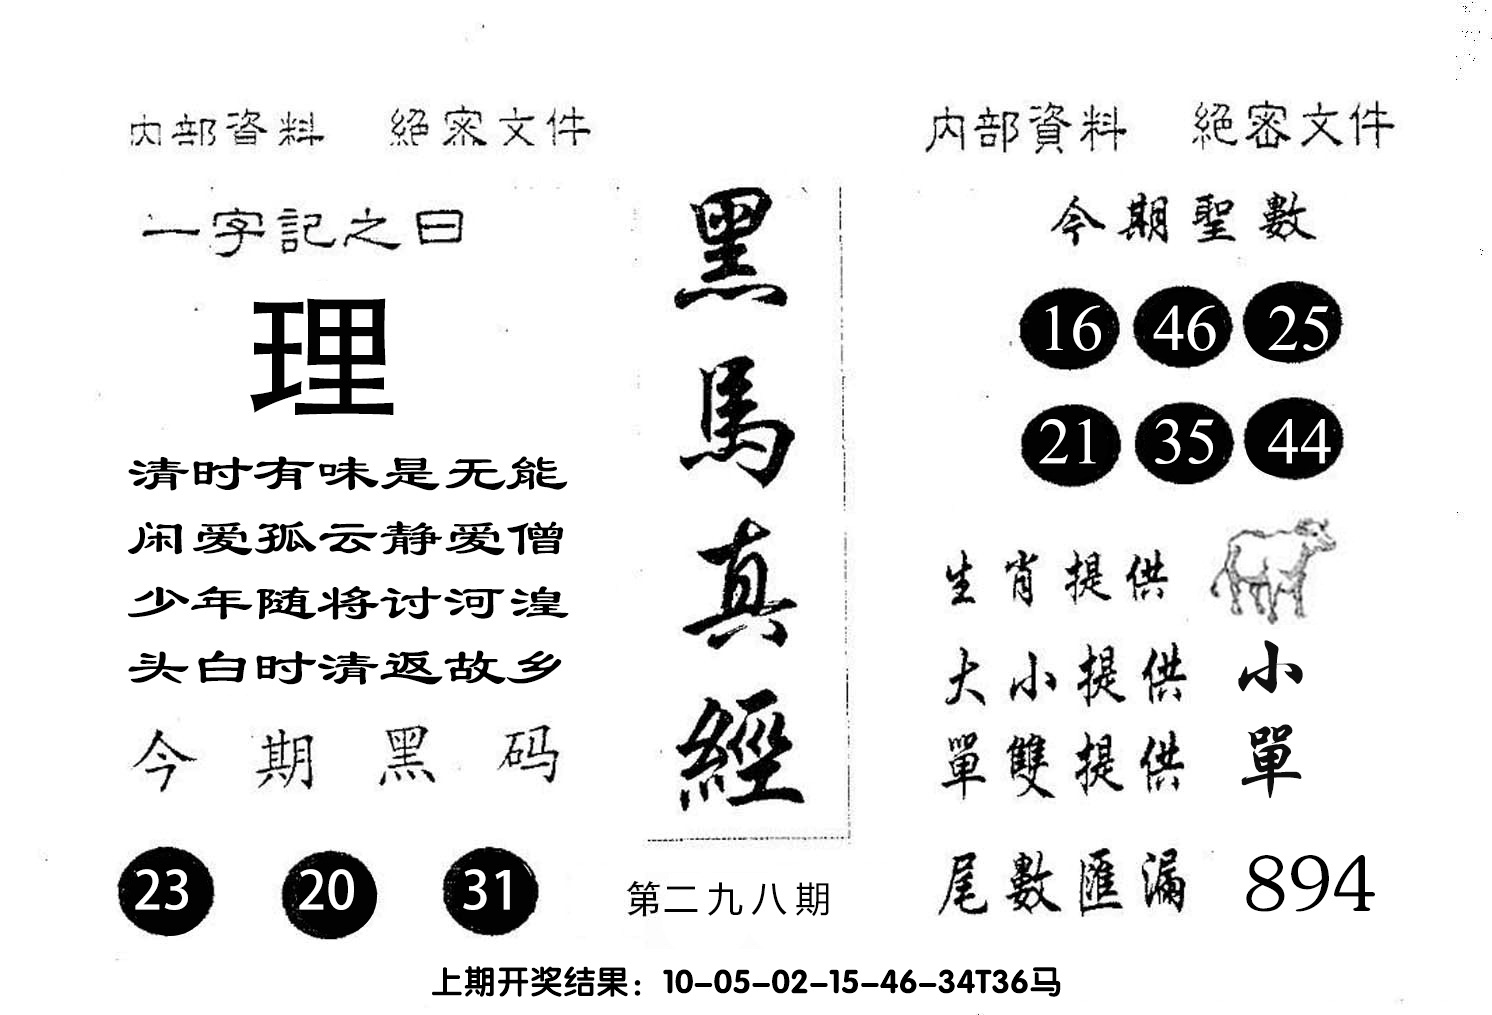 内部資料 絕密文件
一字記之曰
理
清时有味是无能
闲爱孤云静爱僧
少年随将讨河湟
头白时清返故乡
今期黑码
23 20 31
黑馬真經
第二九八期
内部資料 絕密文件
今期聖數
16 46 25
21 35 44
生肖提供
大小提供 小
單雙提供 單
尾數匯漏 894
上期开奖结果：10-05-02-15-46-34T36马